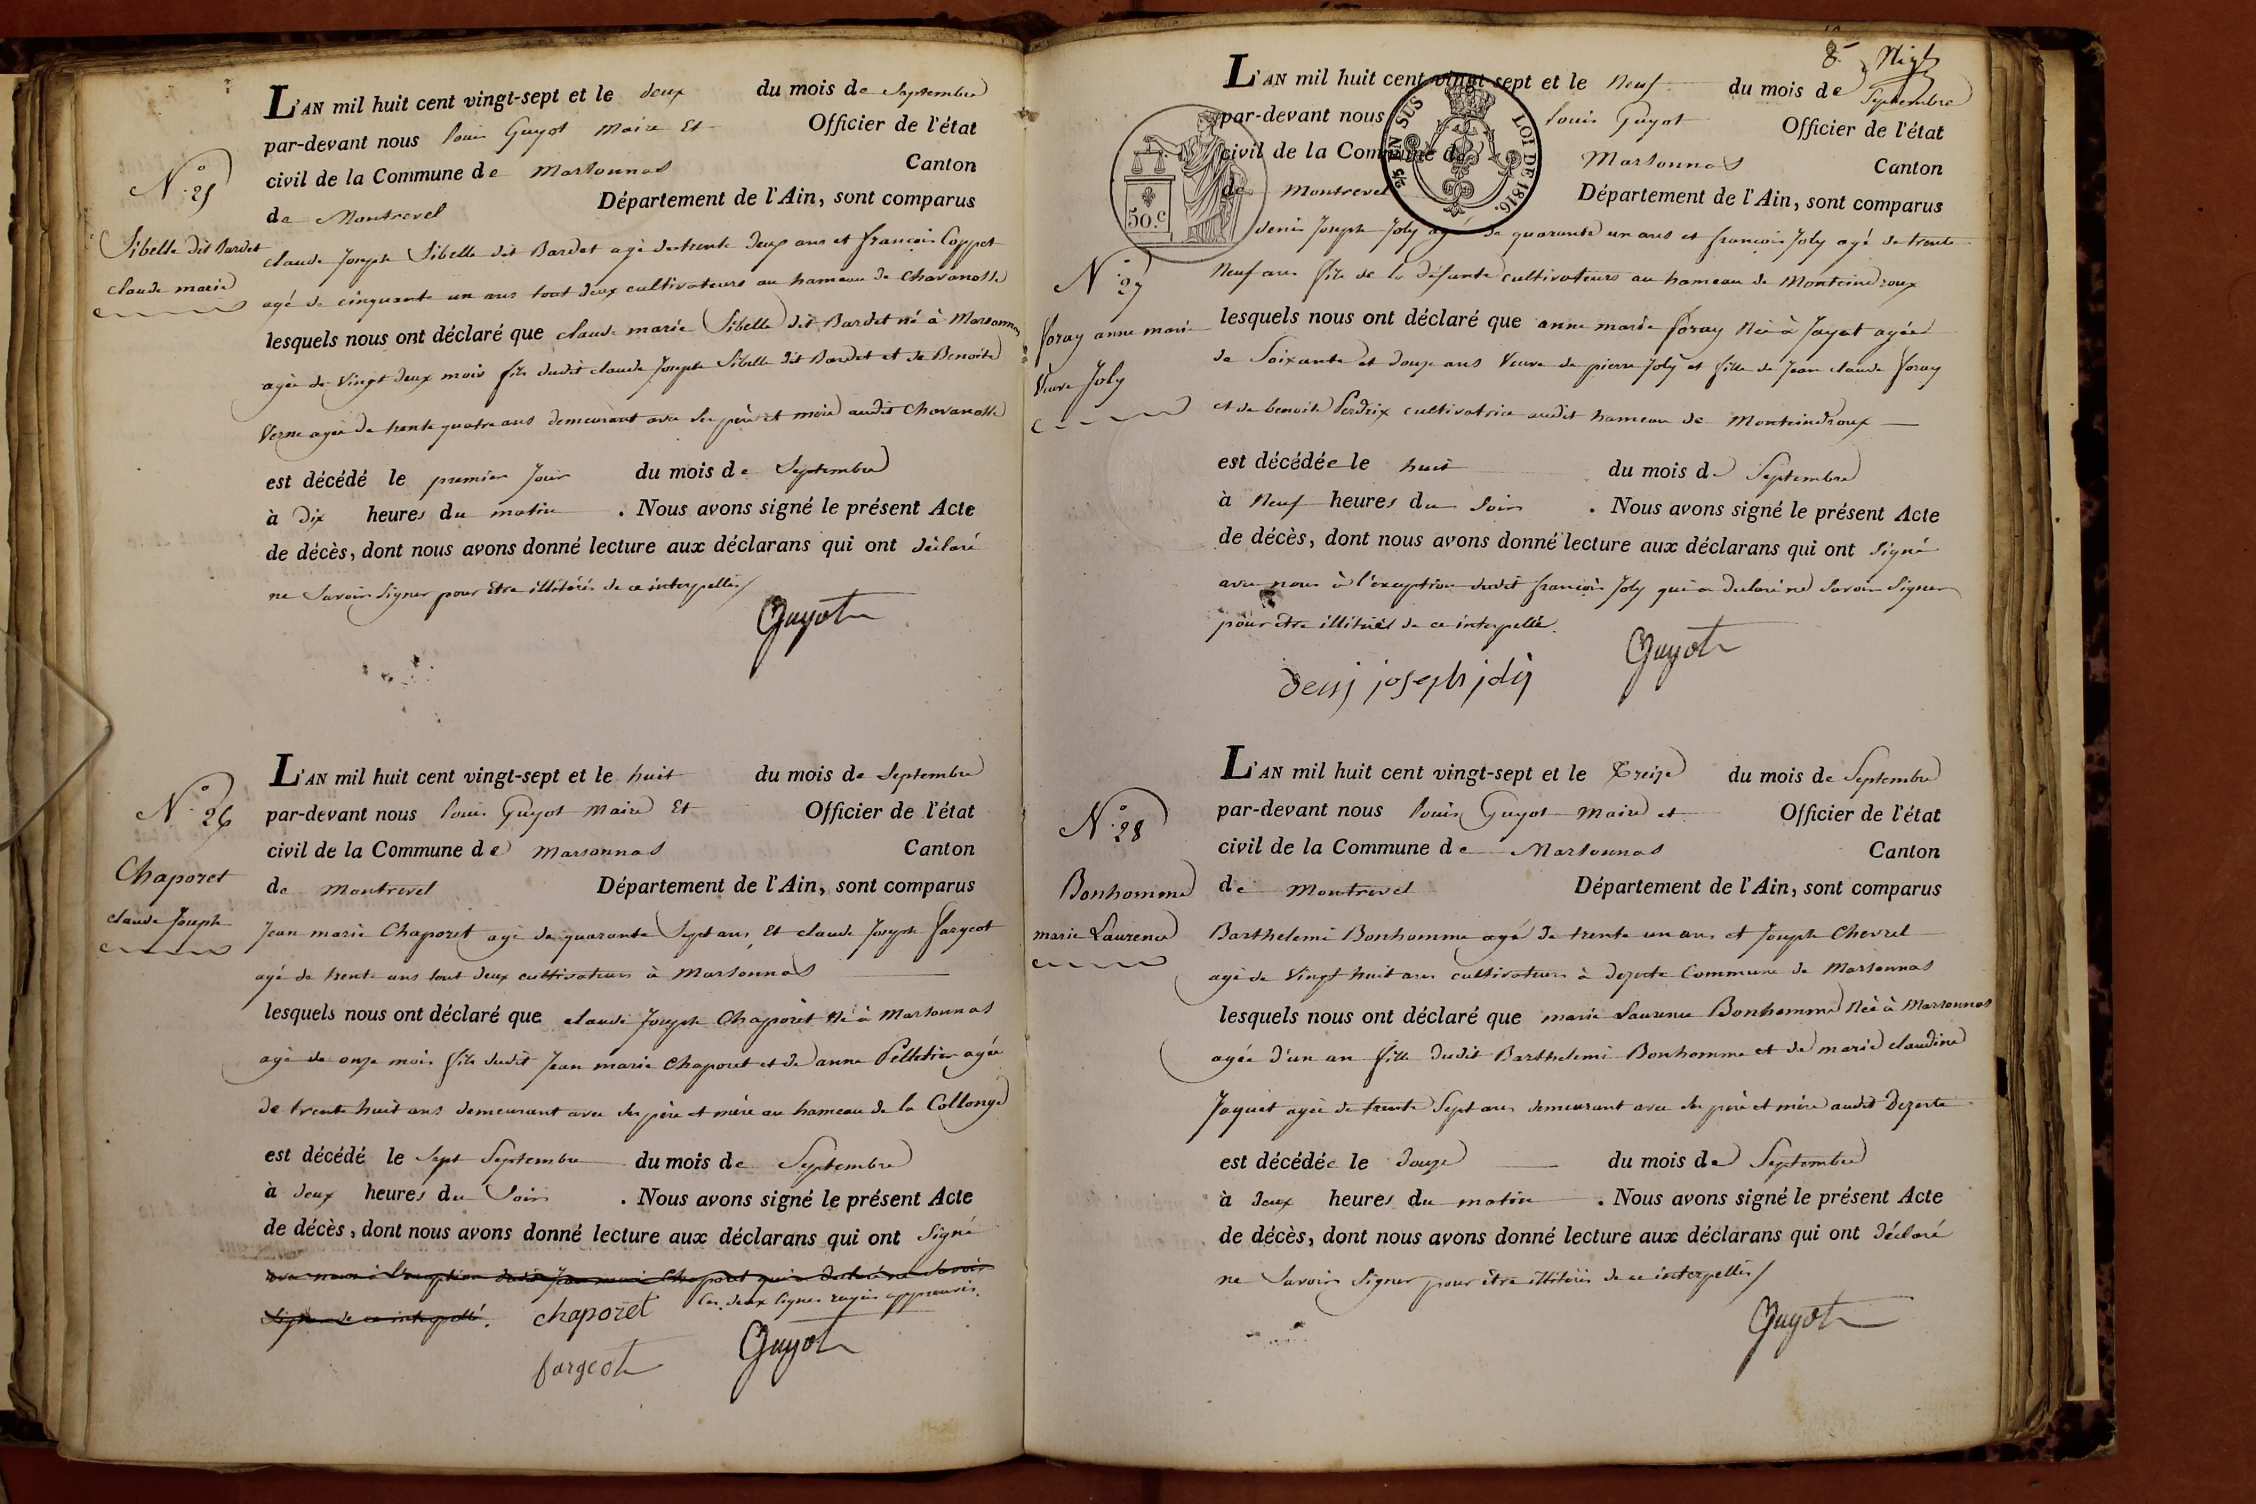 L'AN mil huit cent vingt-sept et le deux du mois de Septembre
par-devant nous Louis Guyot Maire Et Officier de l'état
civil de la Commune de Marsonnas Canton
de Montrevel Département de l'Ain, sont comparus
N.° 25
Sibelle dit Bardet
claude marie
claude Joseph Sibelle dit Bardet agé de trente deux ans et françois Coppet
agé de cinquante un ans tout deux cultivateurs au hameau de Chavanosse
lesquels nous ont déclaré que claude marie Sibelle dit Bardet né à Marsonnas
agée de vingt deux mois fils dudit claude Joseph Sibelle dit Bardet et de Benoite
Verne agée de trente quatre ans demeurant avec ses père et mère audit Chavanosse
est décédé le premier Jour du mois de Septembre
à dix heures du matin . Nous avons signé le présent Acte
de décès, dont nous avons donné lecture aux déclarans qui ont déclaré
ne Savoir Signer pour Etre illitérés de ce interpellés
Guyot
L'AN mil huit cent vingt-sept et le huit du mois de Septembre
par-devant nous Louis Guyot Maire Et Officier de l'état
civil de la Commune de Marsonnas Canton
de Montrevel Département de l'Ain, sont comparus
N.° 26
Chaporet
claude Joseph
Jean marie Chaporet agé de quarante Sept ans, Et claude Joseph fargeot
agé de trente ans tout deux cultivateurs à Marsonnas
lesquels nous ont déclaré que claude Joseph Chaporet Né à Marsonnas
agé de onze mois fils dudit Jean marie Chaporet et de anne Pelletier agée
de trente huit ans demeurant avec ses père et mère au hameau de la Collonge
est décédé le Sept Septembre du mois de Septembre
à deux heures du Soir . Nous avons signé le présent Acte
de décès, dont nous avons donné lecture aux déclarans qui ont Signé
avec nous à l'exception dudit Jean marie Chaporet qui a declaré ne Savoir
Signer de ce interpellé. chaporet Les deux lignes rayées approuvés.
fargeot Guyot
8.
L'AN mil huit cent vingt-sept et le Neuf du mois de Septembre
par-devant nous Louis Guyot Officier de l'état
civil de la Commune de Marsonnas Canton
de Montrevel Département de l'Ain, sont comparus
50.c
25 EN SUS
LOI DE 1816.
N.° 27
foray anne marie
Veuve Joly
denis Joseph Joly agé de quarante un ans et françois Joly agé de trente
Neuf ans fils de la défunte cultivateurs au hameau de Monteindroux
lesquels nous ont déclaré que anne marie foray Née à Jayat agée
de Soixante et douze ans Veuve de pierre Joly et fille de Jean claude foray
et de benoite Perdrix cultivatrice audit hameau de Monteindroux
est décédée le huit du mois de Septembre
à Neuf heures du Soir . Nous avons signé le présent Acte
de décès, dont nous avons donné lecture aux déclarans qui ont Signé
avec nous à l'exception dudit françois Joly qui a declaré ne Savoir Signer
pour être illitéré de ce interpellé.
Guyot
denis joseph joly
L'AN mil huit cent vingt-sept et le Treize du mois de Septembre
par-devant nous Louis Guyot Maire et Officier de l'état
civil de la Commune de Marsonnas Canton
de Montrevel Département de l'Ain, sont comparus
N.° 28
Bonhomme
marie Laurence
Barthelemi Bonhomme agé de trente un ans et Joseph Chevrel
agé de Vingt huit ans cultivateurs à dezerte Commune de Marsonnas
lesquels nous ont déclaré que marie Laurence Bonhomme Née à Marsonnas
agée d'un an fille dudit Barthelemi Bonhomme et de marie claudine
Joquet agée de trente Sept ans demeurant avec ses père et mère audit Dezerte
est décédée le douze du mois de Septembre
à deux heures du matin . Nous avons signé le présent Acte
de décès, dont nous avons donné lecture aux déclarans qui ont déclaré
ne Savoir Signer pour être illitérés de ce interpellés
Guyot